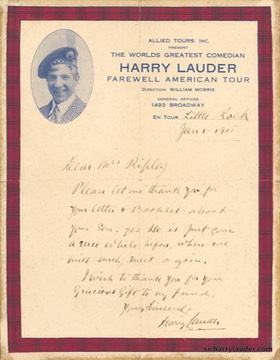 ALLIED TOURS, INC.
PRESENT
THE WORLDS GREATEST COMEDIAN
HARRY LAUDER
FAREWELL AMERICAN TOUR
DIRECTION WILLIAM MORRIS
GENERAL OFFICES
1493 BROADWAY
EN TOUR Little Rock
Jan 1 1918
Dear Mrs Ripley
Please let me thank you for
your letter & Booklet about
your Son. yes He is just gone
a wee while before, where we
will surely meet again.
I wish to thank you for your
Gracious Gift to my fund.
Yours Sincerely
Harry Lauder
sirharrylauder.com